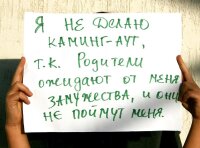 Я НЕ ДЕЛАЮ
КАМИНГ-АУТ,
Т.К. РОДИТЕЛИ
ОЖИДАЮТ ОТ МЕНЯ
ЗАМУЖЕСТВА, И ОНИ
НЕ ПОЙМУТ МЕНЯ.